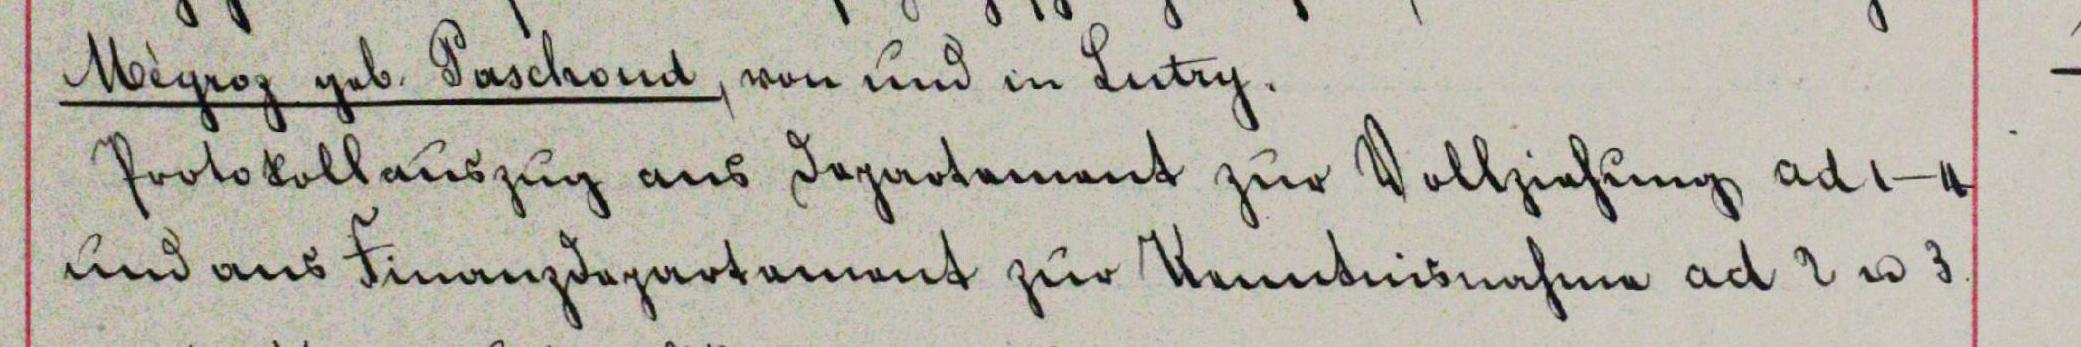 Mègroz geb. Paschoud, von und in Lutry.
Protokollauszug ans Departement zur Vollziehung ad 1–4
und ans Finanzdepartement zur Kenntnisnahme ad 2 u 3.